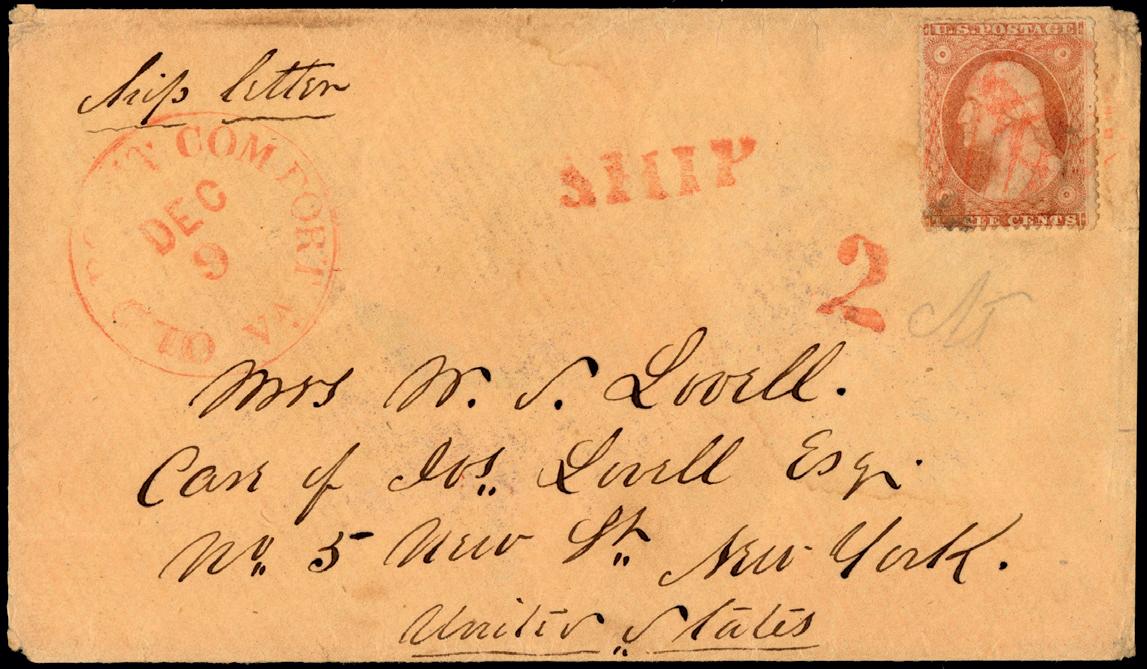 U.S. POSTAGE
THREE CENTS
Ship letter
OLD POINT COMFORT VA
DEC
9
SHIP
2
Mrs W. S. Lovell.
Care of Jos. Lovell Esq.
No. 5 New St. New York.
United States